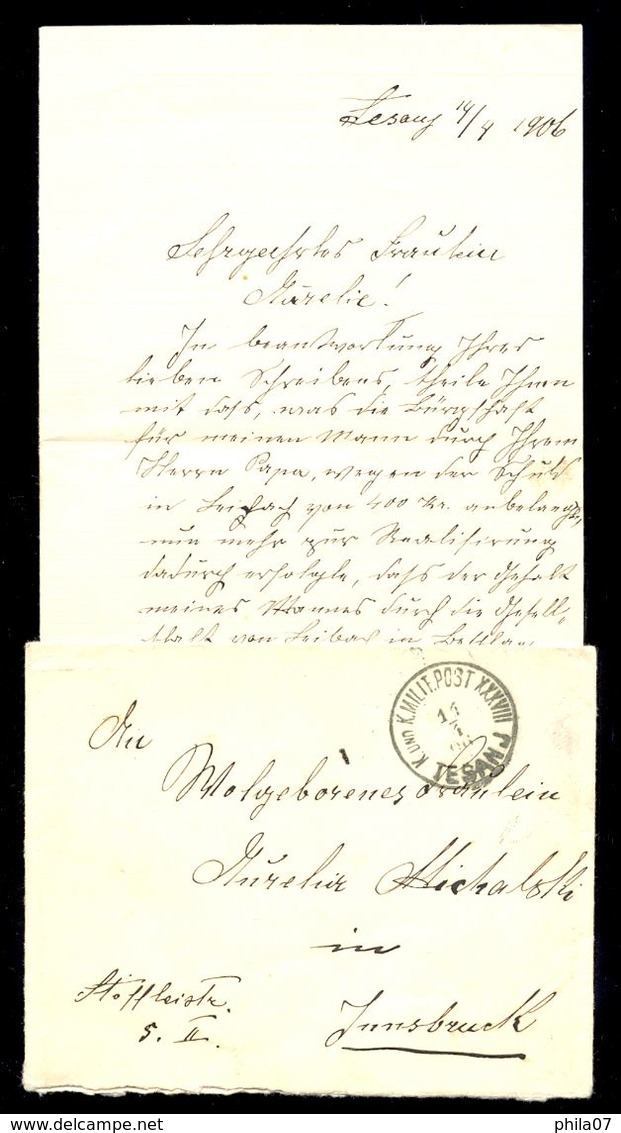 Tesanj 14/4 1906
Sehrgeehrtes Fräulein
Aurelie!
In beantwortung Ihres
lieben Schreibens, theile Ihnen
mit dass, was die Bürgschaft
für meinen Mann durch Ihrem
Herrn Papa, wegen der Schuld
in Leibach von 400 Kr. anbelangt,
nun mehr zur Realisirung
dadurch erfolgte, dass der Gehalt
meines Mannes durch die Gesell=
schaft von Leibach in
K. UND K. MILIT. POST XXXVIII
TESANJ
An
Wolgeborenes Fräulein
Aurelie Michalski
in
Innsbruck
5. II.
delcampe.net
phila07